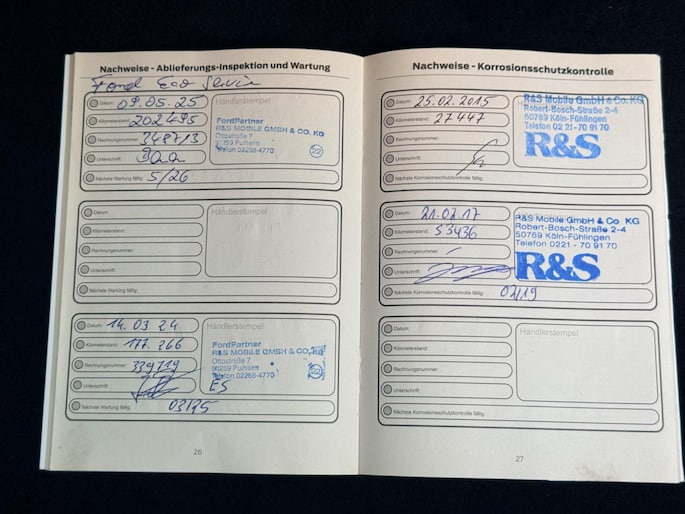 Nachweise - Ablieferungs-Inspektion und Wartung
Ford Eco Servic
Datum: 09.05.25
Händlerstempel
Kilometerstand: 202495
FordPartner
R&S MOBILE GMBH & CO. KG
Ottostraße 7
Pulheim
Telefon 02238-4770
22
Rechnungsnummer: 348713
Unterschrift:
Nächste Wartung fällig: 5/26
Datum:
Händlerstempel
Kilometerstand:
Rechnungsnummer:
Unterschrift:
Nächste Wartung fällig:
Datum: 14.03 24
Händlerstempel
Kilometerstand: 177.266
FordPartner
R&S MOBILE GMBH & CO. KG
Ottostraße 7
50259 Pulheim
Telefon 4770
22
Rechnungsnummer: 339719
Unterschrift:
ES
Nächste Wartung fällig: 03/25
26
Nachweise - Korrosionsschutzkontrolle
Datum: 25.02.2015
R&S Mobile GmbH & Co. KG
Robert-Bosch-Straße 2-4
50769 Köln-Fühlingen
Telefon 02 21-70 91 70
R&S
Kilometerstand: 27447
Rechnungsnummer:
Unterschrift:
Nächste Korrosionsschutzkontrolle fällig:
Datum: 21.02.17
R&S Mobile GmbH & Co KG
Robert-Bosch-Straße 2-4
50769 Köln-Fühlingen
Telefon 0221 - 70 91 70
R&S
Kilometerstand: 53436
Rechnungsnummer:
Unterschrift:
Nächste Korrosionsschutzkontrolle fällig: 02/19
Datum:
Händlerstempel
Kilometerstand:
Rechnungsnummer:
Unterschrift:
Nächste Korrosionsschutzkontrolle fällig:
27